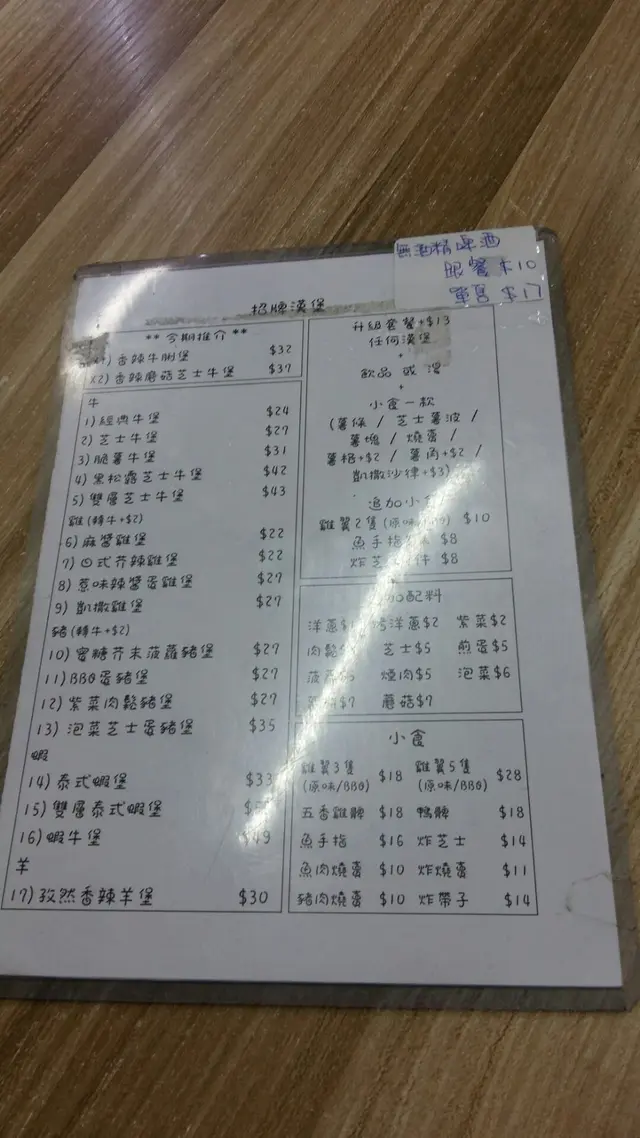 無酒精啤酒
跟餐 $10
單售 $17
招牌漢堡
** 今期推介 **
香辣牛脷堡 $32
X2) 香辣蘑菇芝士牛堡 $37
牛
1) 經典牛堡 $24
2) 芝士牛堡 $27
3) 脆薯牛堡 $31
4) 黑松露芝士牛堡 $42
5) 雙層芝士牛堡 $43
雞(轉牛+$2)
6) 麻醬雞堡 $22
7) 日式芥辣雞堡 $22
8) 惹味辣醬蛋雞堡 $27
9) 凱撒雞堡 $27
豬(轉牛+$2)
10) 蜜糖芥末菠蘿豬堡 $27
11) BBQ蛋豬堡 $27
12) 紫菜肉鬆豬堡 $27
13) 泡菜芝士蛋豬堡 $35
蝦
14) 泰式蝦堡 $33
15) 雙層泰式蝦堡
16) 蝦牛堡 $49
羊
17) 孜然香辣羊堡 $30
升級套餐+$13
任何漢堡
+
飲品 或 湯
+
小食一款
(薯條 / 芝士薯波 /
薯塊 / 燒賣 /
薯格+$2 / 薯角+$2 /
凱撒沙律+$3)
追加小食
雞翼2隻(原味 $10
魚手指 $8
炸芝 件 $8
加配料
洋蔥 洋蔥$2 紫菜$2
肉鬆 芝士$5 煎蛋$5
菠蘿 煙肉$5 泡菜$6
$7 蘑菇$7
小食
雞翼3隻 (原味/BBQ) $18 雞翼5隻 (原味/BBQ) $28
五香雞髀 $18 鴨髀 $18
魚手指 $16 炸芝士 $14
魚肉燒賣 $10 炸燒賣 $11
豬肉燒賣 $10 炸帶子 $14